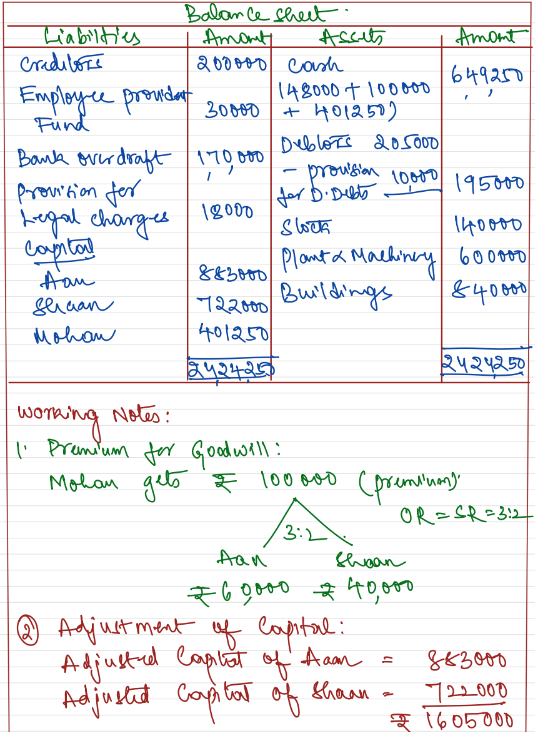 Balance sheet.
Liabilities Amount Assets Amount
Creditors 200000 Cash 649250
Employee provident Fund 30000 (148000 + 100000 + 401250)
Bank overdraft 170,000 Debtors 205000
- provision for D.Debts 10,000 195000
provision for Legal charges 18000 Stock 140000
Capital Plant & Machinery 600000
Aan 883000 Buildings 840000
Shaan 722000
Mohan 401250
2424250 2424250
Working Notes:
1. Premium for Goodwill:
Mohan gets ₹ 100000 (premium).
OR = SR = 3:2
3:2
Aan Shaan
₹ 60,000 ₹ 40,000
② Adjustment of Capital:
Adjusted Capital of Aaan = 883000
Adjusted Capital of Shaan = 722000
₹ 1605000